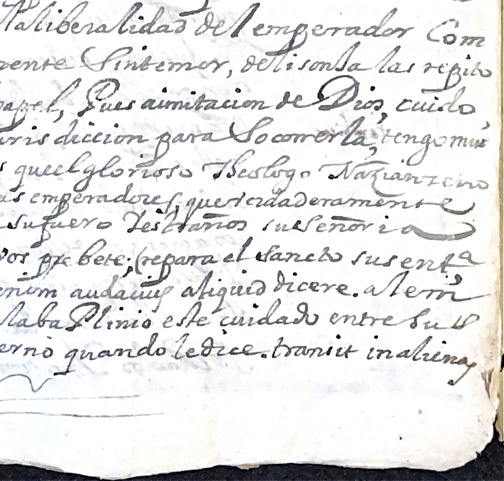 la liberalidad del emperador Com
rente Sintemor, delisonsa las repito
papel, Pues aimitacion de Dios, cuido,
urisdiccion para Socorrerla, tengo mui
s que el glorioso Theologo Nazianzeno
us emperadores, que verdaderamente
su fuero Testraños su señoria
vos præbete; (repara el sancto su sent.a
enim audacius aliquid dicere. alemi
laba Plinio este cuidado entre Sus
erno quando le dice. transit in alienas